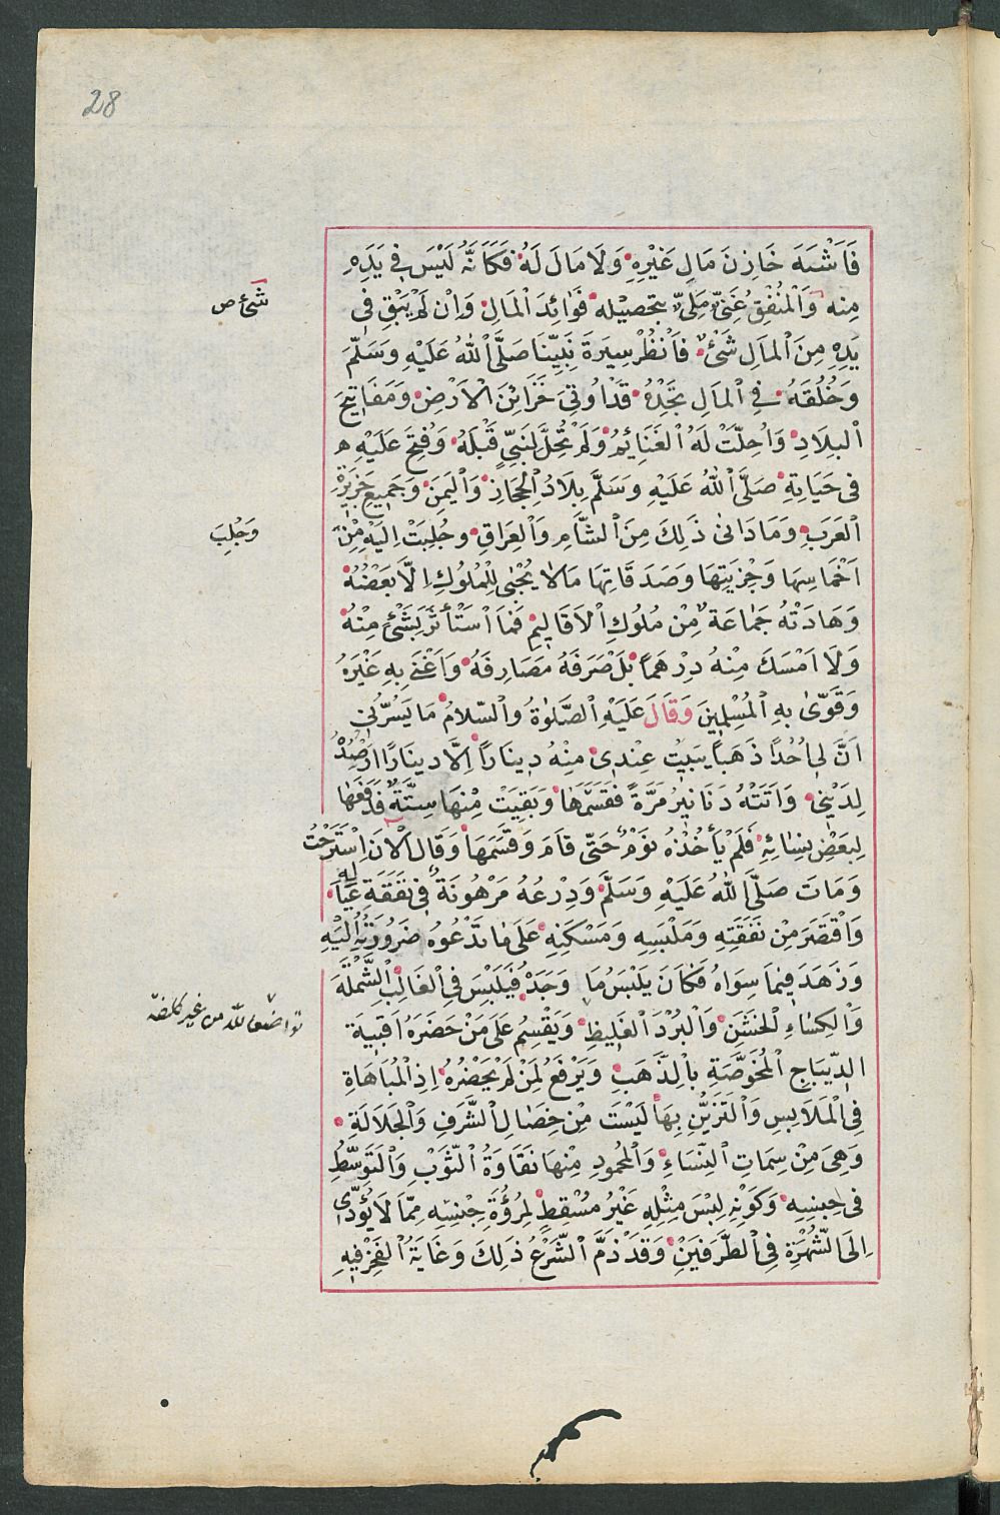 28
فَاَشْبَهَ خَازِنَ مَالِ غَيْرِهِ وَلَا مَالَ لَهُ فَكَاَنَّهُ لَيْسَ فِي يَدِهِ
مِنه وَالْمُنْفِقُ غَنِيٌّ مَلِيٌّ بتحصيْله فَوَائِدَ الْمَالِ وَاِنْ لَمْ يَبْقِ فى
شئ ص
يَدِهِ مِنَ الْمَالِ شَئْ فاَنْظُرْ سِيرَةَ نَبِيِّنَا صَلَّى اللهُ عَلَيْهِ وَسَلَّمَ
وَخُلُقَهُ فِي الْمَالِ تَجِدْهُ قَدْ اُوتِىَ خَزَائِنَ الْاَرْضِ وَمَفَاتِيحَ
الْبِلَادِ وَاُحِلَّتْ لَهُ الْغَنَايِمُ وَلَمْ تُحَلَّ لِنَبِىٍّ قَبْلَهُ وَفُتِحَ عَلَيْهِ ه
فى حَيَاتِهِ صَلَّى اللهُ عَلَيْهِ وَسَلَّمَ بِلَادُ الْحِجَازِ وَالْيَمَنَ وَجَمِيعِ جَزِيرَةِ
الْعَرَبِ وَمَا دَانىٰ ذَلِكَ مِنَ الشَّامِ وَالْعِرَاقِ وجُلِبَتْ اِلَيْهِ مِنْ
وَجُلِبَ
اَخْمَاسِهَا وَجِزْيَتِهَا وَصَدَقَاتِهَا مَالَا يُجْبٰى لِلْمُلُوكِ اِلَّا بَعْضُهُ
وَهَادَتْهُ جَمَاعَةٌ مِنْ مُلُوكِ الْاَقَالِيمِ فَمَا اسْتَأْثَرَ بِشَئْ مِنْهُ
وَلَا اَمْسَكَ مِنْهُ دِرْهَماً بَلْ صَرَفَهُ مَصَارِفَهُ وَاَغْنَى بِهِ غَيْرَهُ
وَقَوّىٰ بِهِ الْمُسْلِمِينَ وَقَالَ عَلَيْهِ الصَّلٰوةُ وَالسّلامُ مَا يَسُرُّنِى
اَنَّ لِى اُحُدًا ذَهَباً يَبِيتُ عِنْدِى مِنْهُ دِينَارٌ اِلَّا دِينَارًا اَرْصُدُهُ
لِدَيْنِى وَاَتَتْهُ دَنَانِيرُ مَرَّةً فَقَسَّمَهَا وَبَقِيَتْ مِنْهَا سِتَّةٌ فَدَفَعَهَا
لِبَعْضِ نِسَائِهِ فَلَمْ يَأْخُذْهُ نَوْمٌ حَتّى قَامَ وَقَسَّمَهَا وَقَالَ الْاٰنَ اسْتَرَحْتُ
وَمَاتَ صَلَّى اللهُ عَلَيْهِ وَسَلَّمَ وَدِرْعُهُ مَرْهُونَةٌ فِى نَفَقَةِ عِيَالِهِ
وَاقْتَصَرَ مِنْ نَفَقَتِهِ وَمَلْبَسِهِ وَمَسْكَنِهِ عَلَى مَا تَدْعُوهُ ضَرُورَتُهُ اِلَيْهِ
وَزَهَدَ فِيمَا سِوَاهُ فَكَانَ يَلْبَسُ مَا وَجَدَ فَيَلْبَسُ فِى الْغَالِبِ الشَّمْلَةَ
تواضعا لله من غير كلفة
وَالْكِسَاءِ الْخَشَنِ وَالْبُرْدَ الْغَلِيظِ وَيَقْسِمُ عَلَى مَنْ حَضَرَهُ اَقْبِيَةَ
الدِّيبَاجِ الْمُخَوَّصَةِ بالذَّهَبِ وَيَرْفَعُ لِمَنْ لَمْ يَحْضُرْهُ اِذِ الْمُبَاهَاةِ
فِى الْمَلَابِسِ وَالتَزَيُّنِ بِهَا لَيْسَتْ مِنْ خِصَالِ الشَّرَفِ وَالْجَلَالَةِ
وَهِىَ مِنْ سِمَاتِ النِسَاءِ وَالْمَحْمُودِ مِنْهَا نَقَاوَةُ الثَّوْبِ وَالتَوَسُّطُ
فى جِنسِهِ وَكَوْنِهِ لِبْسَ مِثْلِهِ غَيْرُ مُسْقِطٍ لِمُرُؤَّةِ جِنْسِهِ مِمَّا لَا يُؤَدِّى
اِلَى الشُّهْرَةِ فِى الطَّرَفَيْنِ وَقَدْ ذَمَّ الشَّرْعُ ذٰلِكَ وَغَايَةُ الْفَخْرِ فِيهِ